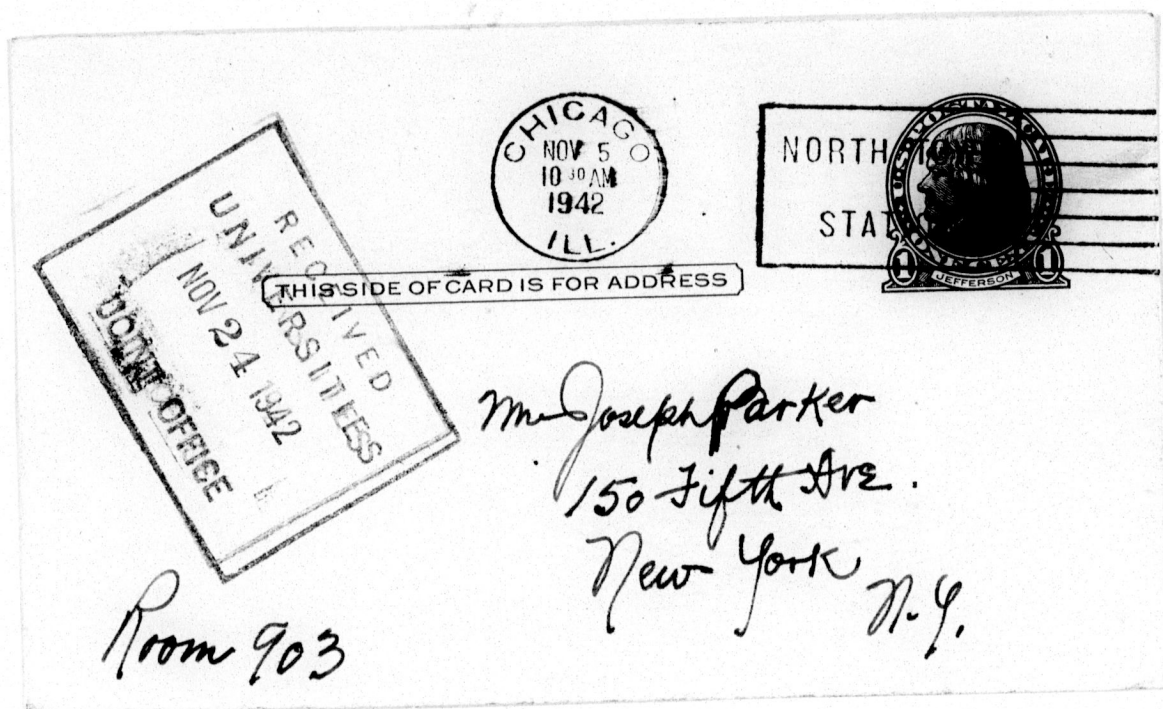 CHICAGO
NOV 5
10 30 AM
1942
ILL.
NORTH
STAT
U.S. POSTAL CARD
ONE CENT
1 JEFFERSON 1
THIS SIDE OF CARD IS FOR ADDRESS
RECEIVED
UNIVERSITIES
NOV 24 1942
JOINT OFFICE
Mr Joseph Parker
150 Fifth Ave.
New York
N.Y.
Room 903